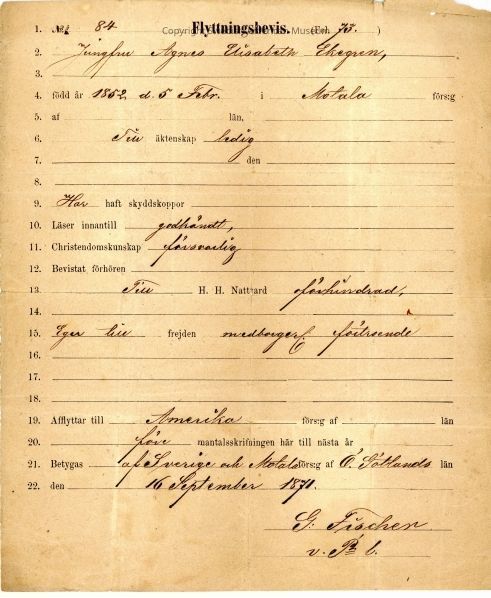 1. No 84 Flyttningsbevis. 73.
2. Jungfru Agnes Elisabeth Ekegren,
3.
4. född år 1852 d. 5 Febr. i Motala förs:g
5. af län,
6. Till äktenskap ledig
7. den
8.
9. Har haft skyddskoppor
10. Läser innantill godkändt,
11. Christendomskunskap försvarlig
12. Bevistat förhören
13. Till H. H. Nattvard oförhindrad,
14.
15. Eger till frejden medborgerl. förtroende
16.
17.
18.
19. Afflyttar till Amerika förs:g af län
20. före mantalsskrifningen här till nästa år
21. Betygas af Sverige och Motala förs:g af Ö. Götlands län
22. den 16 September 1871.
G. Fischer
v. P.